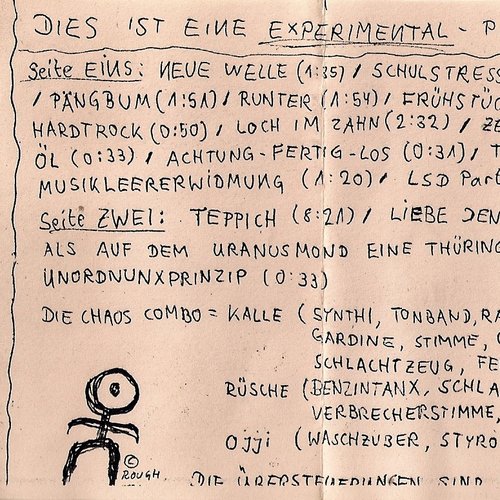 DIES IST EINE EXPERIMENTAL - P
Seite EINS: NEUE WELLE (1:35) / SCHULSTRESS
/ PÄNGBUM (1:51) / RUNTER (1:54) / FRÜHSTÜC
HARDTROCK (0:50) / LOCH IM ZAHN (2:32) / ZE
ÖL (0:33) / ACHTUNG-FERTIG-LOS (0:31) / T
MUSIKLEERERWIDMUNG (1:20) / LSD Part
Seite ZWEI: TEPPICH (8:21) / LIEBE DEN
ALS AUF DEM URANUSMOND EINE THÜRING
UNORDNUNXPRINZIP (0:33)
DIE CHAOS COMBO = KALLE (SYNTHI, TONBAND, RA
GARDINE, STIMME,
SCHLACHTZEUG, FE
RÜSCHE (BENZINTANX, SCHLA
VERBRECHERSTIMME,
Ojji (WASCHZUBER, STYRO
© ROUGH
DIE ÜBERSTEUERUNGEN SIND